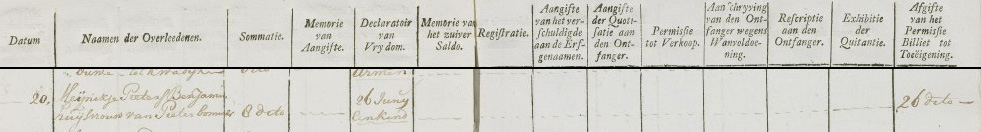 Datum
Naamen der Overleedenen.
Sommatie.
Memorie van Aangifte.
Declaratoir van Vrydom.
Memorie van het zuiver Saldo.
Registratie.
Aangifte van het verschuldigde aan de Erfgenaamen.
Aangifte der Quotisatie aan den Ontfanger.
Permissie tot Verkoop.
Aanschryving van den Ontfanger wegens Wanvoldoening.
Rescriptie aan den Ontfanger.
Exhibitie der Quitantie.
Afgifte van het Permissie Billiet tot Toeëigening.
20.
Pieters Benjamin
huysvrouw van Pieter
8 dito
26 Juny
een kind
26 dito